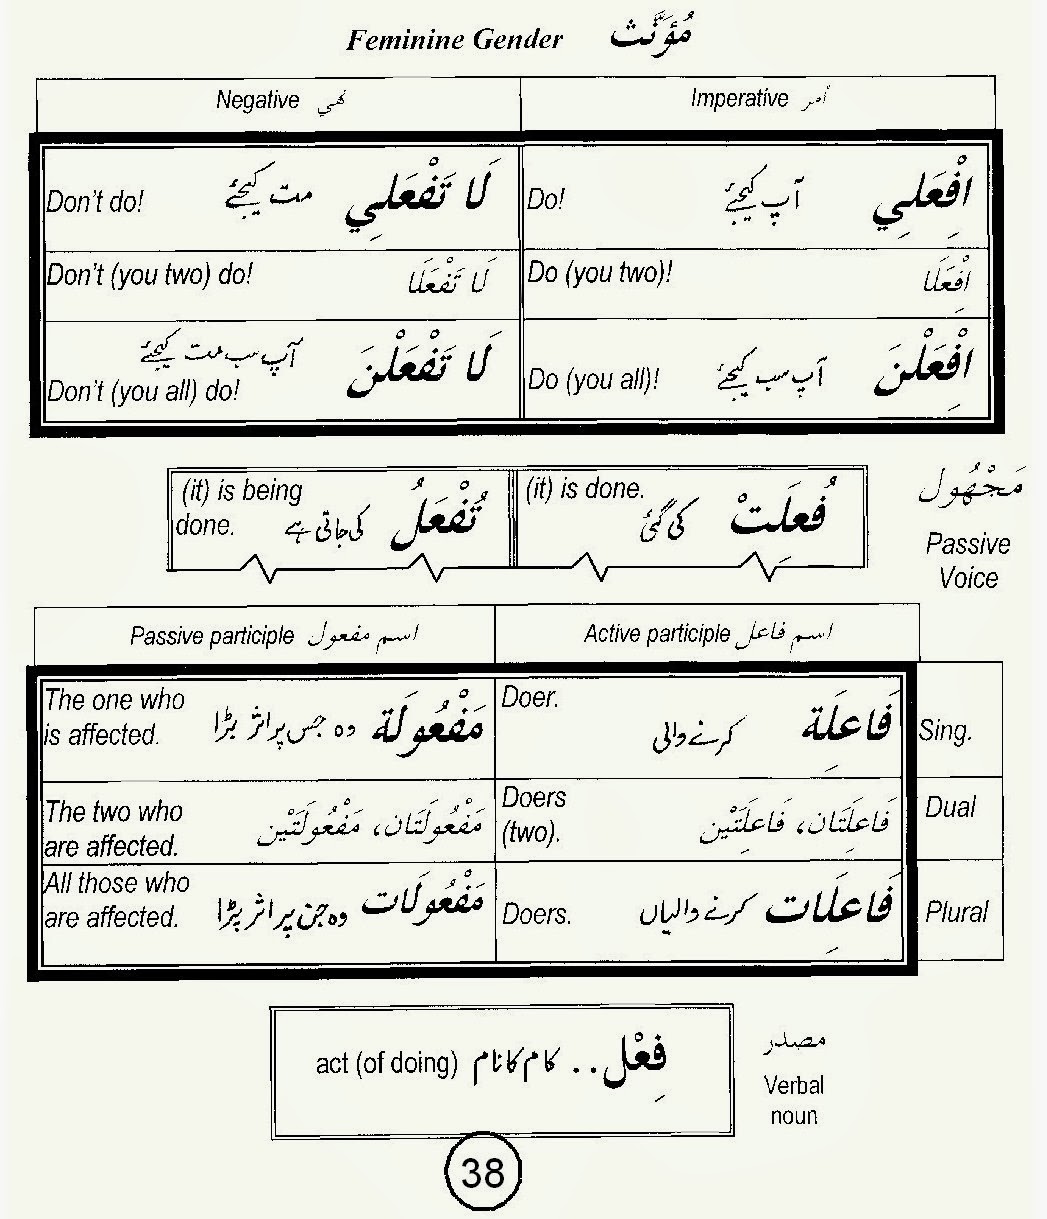 Feminine Gender مُؤَنَّث
Negative نهي Imperative أمر
Don't do! مت کیجئے لَا تَفْعَلِي Do! آپ کیجئے اِفْعَلِي
Don't (you two) do! لَا تَفْعَلَا Do (you two)! اِفْعَلَا
Don't (you all) do! آپ سب مت کیجئے لَا تَفْعَلْنَ Do (you all)! آپ سب کیجئے اِفْعَلْنَ
(it) is being done. کی جاتی ہے تُفْعَلُ (it) is done. کی گئی فُعِلَتْ مَجْهُول
Passive
Voice
Passive participle اسم مفعول Active participle اسم فاعل
The one who is affected. وہ جس پر اثر پڑا مَفْعُولَة Doer. کرنے والی فَاعِلَة Sing.
The two who are affected. مَفْعُولَتَان، مَفْعُولَتَيْن Doers (two). فَاعِلَتَان، فَاعِلَتَيْن Dual
All those who are affected. وہ جن پر اثر پڑا مَفْعُولَات Doers. کرنے والیاں فَاعِلَات Plural
act (of doing) کام کا نام .. فِعْل مصدر
Verbal
noun
38